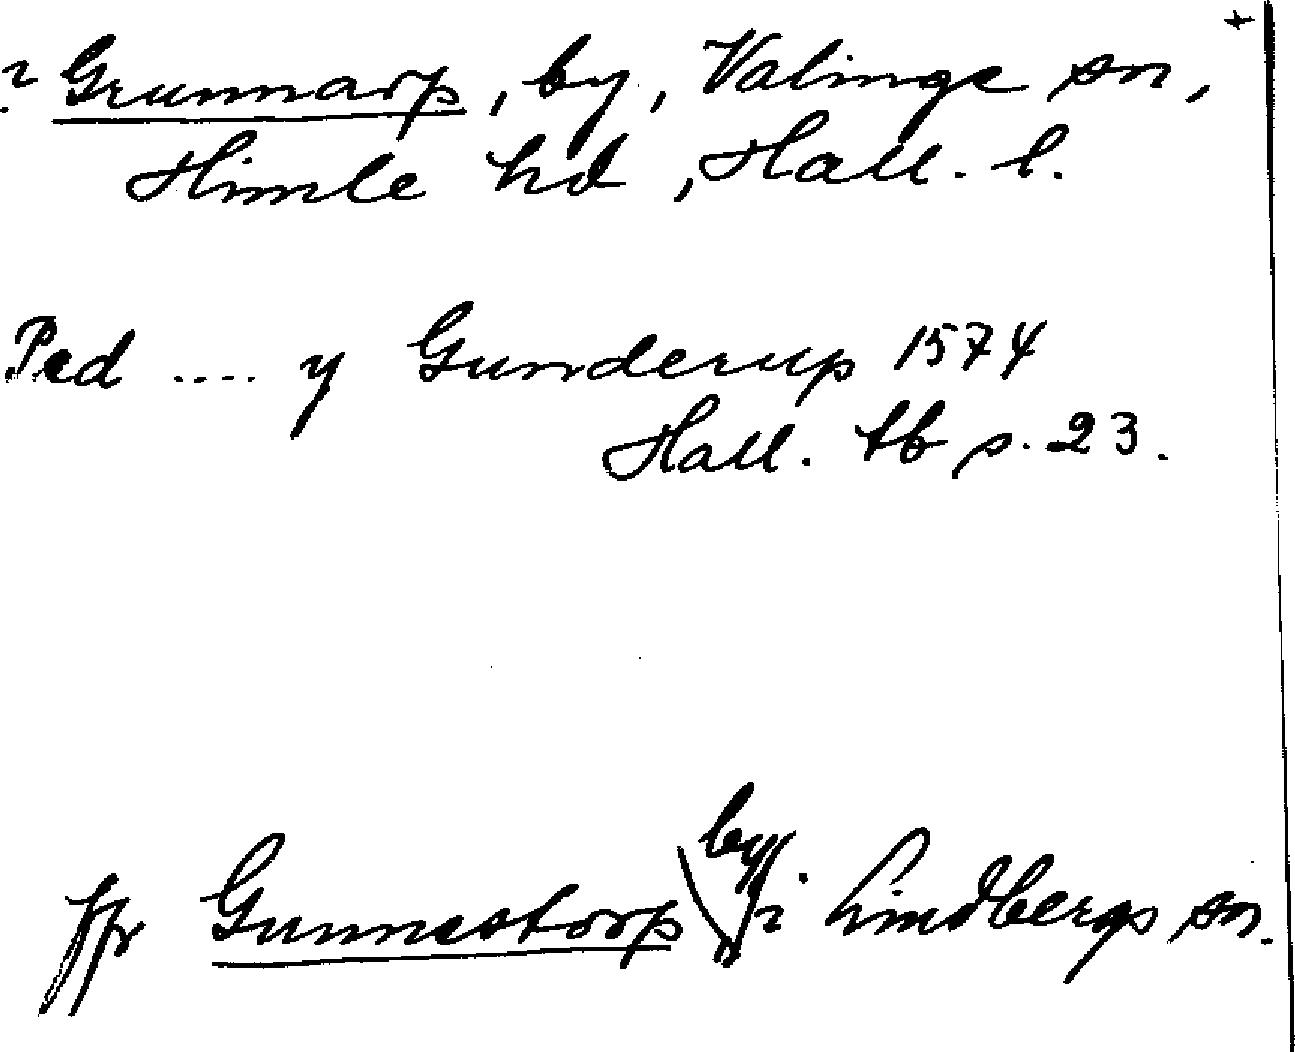 ? Grunnarp, by, Valinge sn,
Himle hd, Hall. l.
Ped .... y Gunderup 1574
Hall. tb s. 23.
jfr Gunnestorp by i Lindbergs sn.